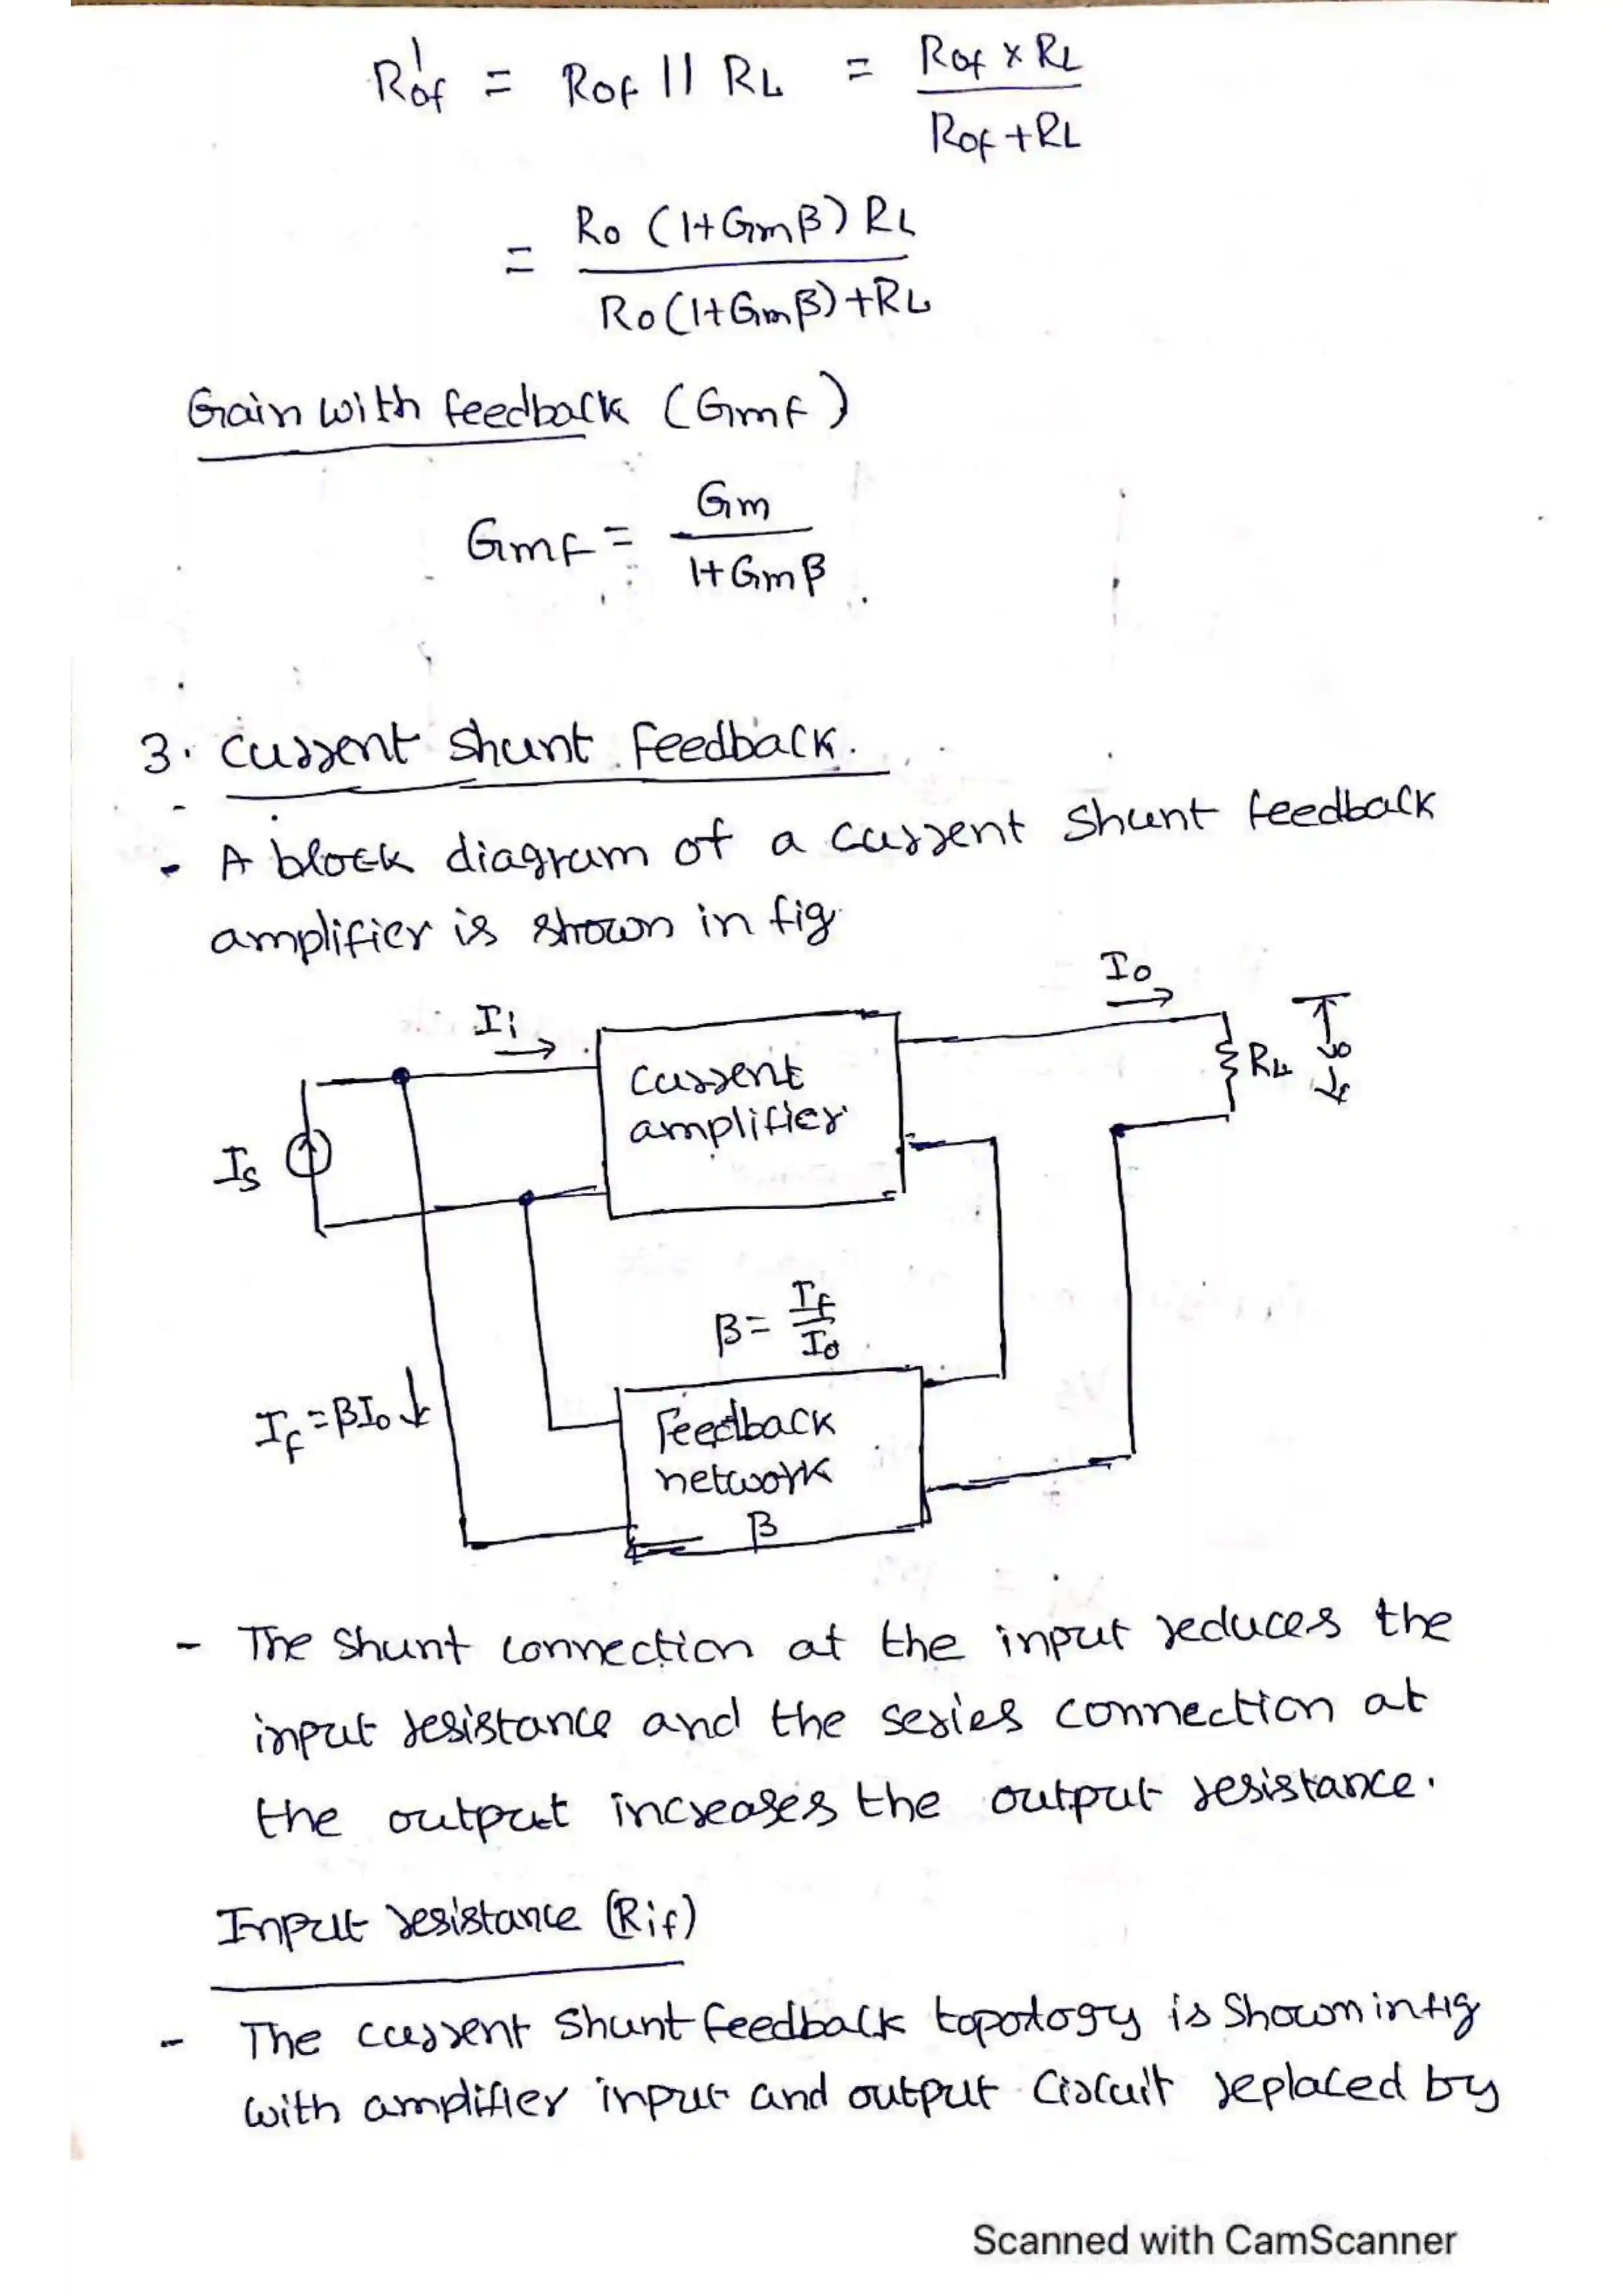 R'of = Rof || RL = Rof × RL / Rof + RL
= Ro (1+Gmβ) RL / Ro(1+Gmβ)+RL
Gain with feedback (Gmf)
Gmf = Gm / 1+Gmβ
3. Current shunt feedback.
- A block diagram of a current shunt feedback
amplifier is shown in fig
Io
Ii
Current
amplifier
RL
Vo
Is
β = If / Io
If = βIo
Feedback
network
β
- The shunt connection at the input reduces the
input resistance and the series connection at
the output increases the output resistance.
Input resistance (Rif)
- The current shunt feedback topology is shown in fig
with amplifier input and output circuit replaced by
Scanned with CamScanner